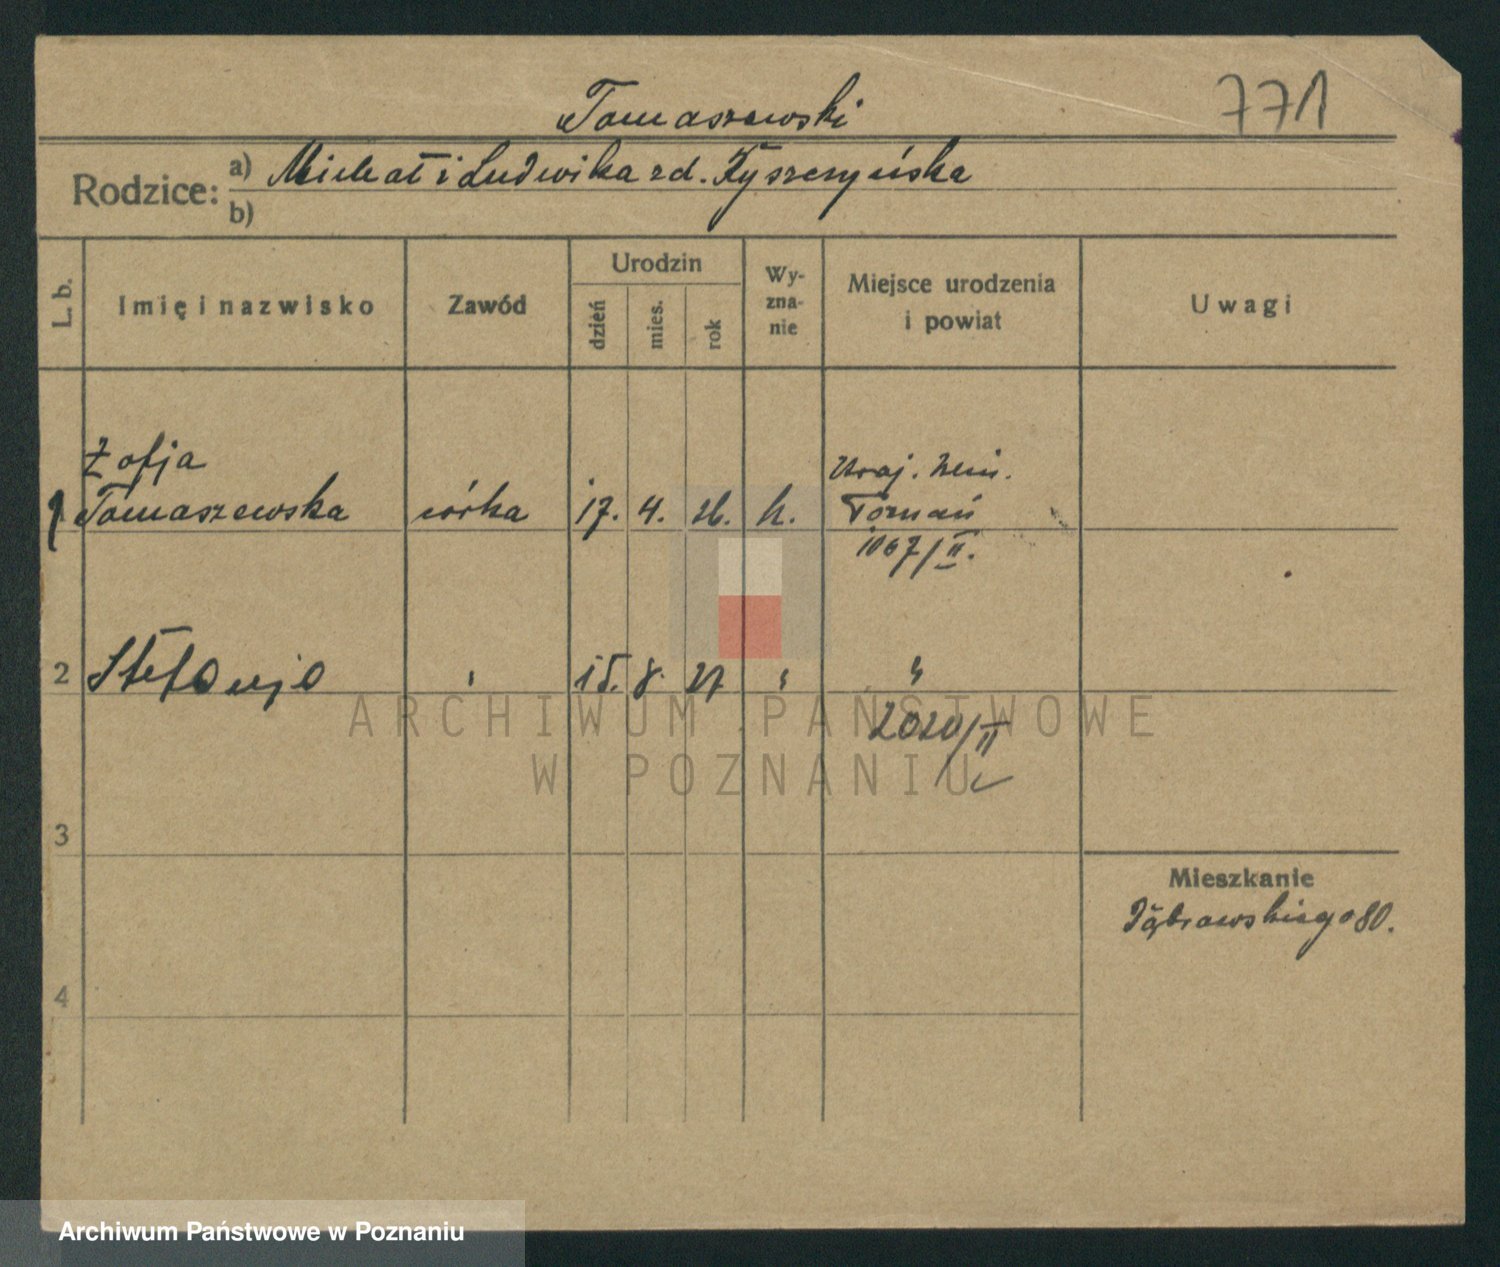 771
Tomaszewski
Rodzice: a) Michał i Ludwika zd. Tyszczyńska
b)
L. b. Imię i nazwisko Zawód Urodzin dzień mies. rok Wyznanie Miejsce urodzenia i powiat Uwagi
Zofja
1 Tomaszewska córka 17. 4. 26. k.
Poznań
1067/II.
2 Stefanja " 15. 8. 27 " "
2020/II
3
Mieszkanie
Dąbrowskiego 80.
4
ARCHIWUM PAŃSTWOWE
W POZNANIU
Archiwum Państwowe w Poznaniu